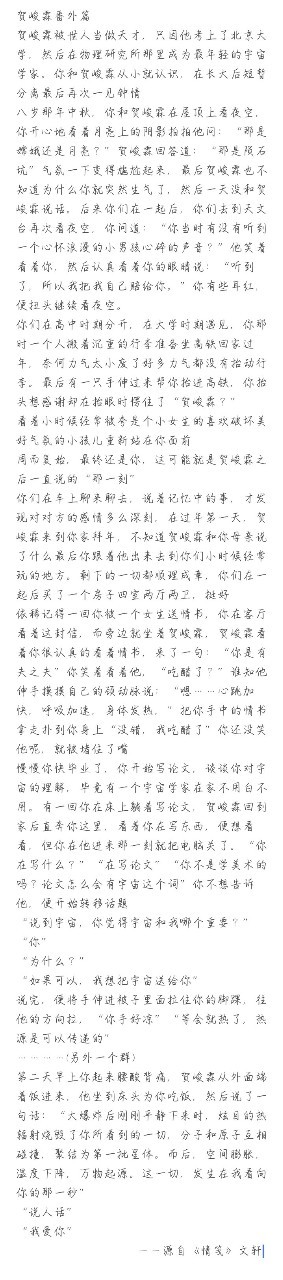 贺峻霖番外篇
贺峻霖被世人当做天才，只因他考上了北京大
学，然后在物理研究所那里成为最年轻的宇宙
学家。你和贺峻霖从小就认识，在长大后短暂
分离最后再次一见钟情
八岁那年中秋，你和贺峻霖在屋顶上看夜空，
你开心地看着月亮上的阴影拍拍他问：“那是
嫦娥还是月亮？”贺峻霖回答道：“那是陨石
坑”气氛一下变得尴尬起来，最后贺峻霖也不
知道为什么你就突然生气了，然后一天没和贺
峻霖说话。后来你们在一起后，你们去到天文
台再次看夜空，你问道：“你当时有没有听到
一个心怀浪漫的小男孩心碎的声音？”他笑着
看着你，然后认真看着你的眼睛说：“听到
了，所以我把我自己赔给你。”你有些耳红，
便扭头继续看夜空。
你们在高中时期分开，在大学时期遇见，你那
时一个人搬着沉重的行李准备坐高铁回家过
年，奈何力气太小废了好多力气都没有抬动行
李。最后有一只手伸过来帮你抬进高铁，你抬
头想感谢却在抬眼时愣住了“贺峻霖？”
看着小时候经常被夸是个小女生的喜欢破坏美
好气氛的小孩儿重新站在你面前
周而复始，最终还是你，这可能就是贺峻霖之
后一直说的“那一刻”
你们在车上聊来聊去，说着记忆中的事，才发
现对对方的感情多么深刻，在过年第一天，贺
峻霖来到你家拜年，不知道贺峻霖和你母亲说
了什么最后你跟着他出来去到你们小时候经常
玩的地方。剩下的一切都顺理成章，你们在一
起后买了一个房子四室两厅两卫，挺好
依稀记得一回你被一个女生送情书，你在客厅
看着这封信，而旁边就坐着贺峻霖，贺峻霖看
着你很认真的看着情书，来了一句：“你是有
夫之夫”你笑着看着他，“吃醋了？”谁知他
伸手摸摸自己的颈动脉说：“想……心跳加
快，呼吸加速，身体发热。”把你手中的情书
拿走扑到你身上“没错，我吃醋了”你还没笑
他呢，就被堵住了嘴
慢慢你快毕业了，你开始写论文，谈谈你对宇
宙的理解，毕竟有一个宇宙学家在家不用白不
用。有一回你在床上躺着写论文，贺峻霖回到
家后直奔你这里，看着你在写东西，便想看
看，但你在他进来那一刻就把电脑关了。“你
在写什么？”“在写论文”“你不是学美术的
吗？论文怎么会有宇宙这个词”你不想告诉
他，便开始转移话题
“说到宇宙，你觉得宇宙和我哪个重要？”
“你”
“为什么？”
“如果可以，我想把宇宙送给你”
说完，便将手伸进被子里面拉住你的脚踝，往
他的方向拉，“你手好凉”“等会就热了，热
源是可以传递的”
…………(另外一个群)
第二天早上你起来腰酸背痛，贺峻霖从外面端
着饭进来，他坐到床头为你吃饭，然后说了一
句话：“大爆炸后刚刚平静下来时，炫目的热
辐射烧毁了你所看到的一切，分子和原子互相
碰撞，聚结为第一批星体。而后，空间膨胀，
温度下降，万物起源。这一切，发生在我看向
你的那一秒”
“说人话”
“我爱你”
——源自《情笺》文轩